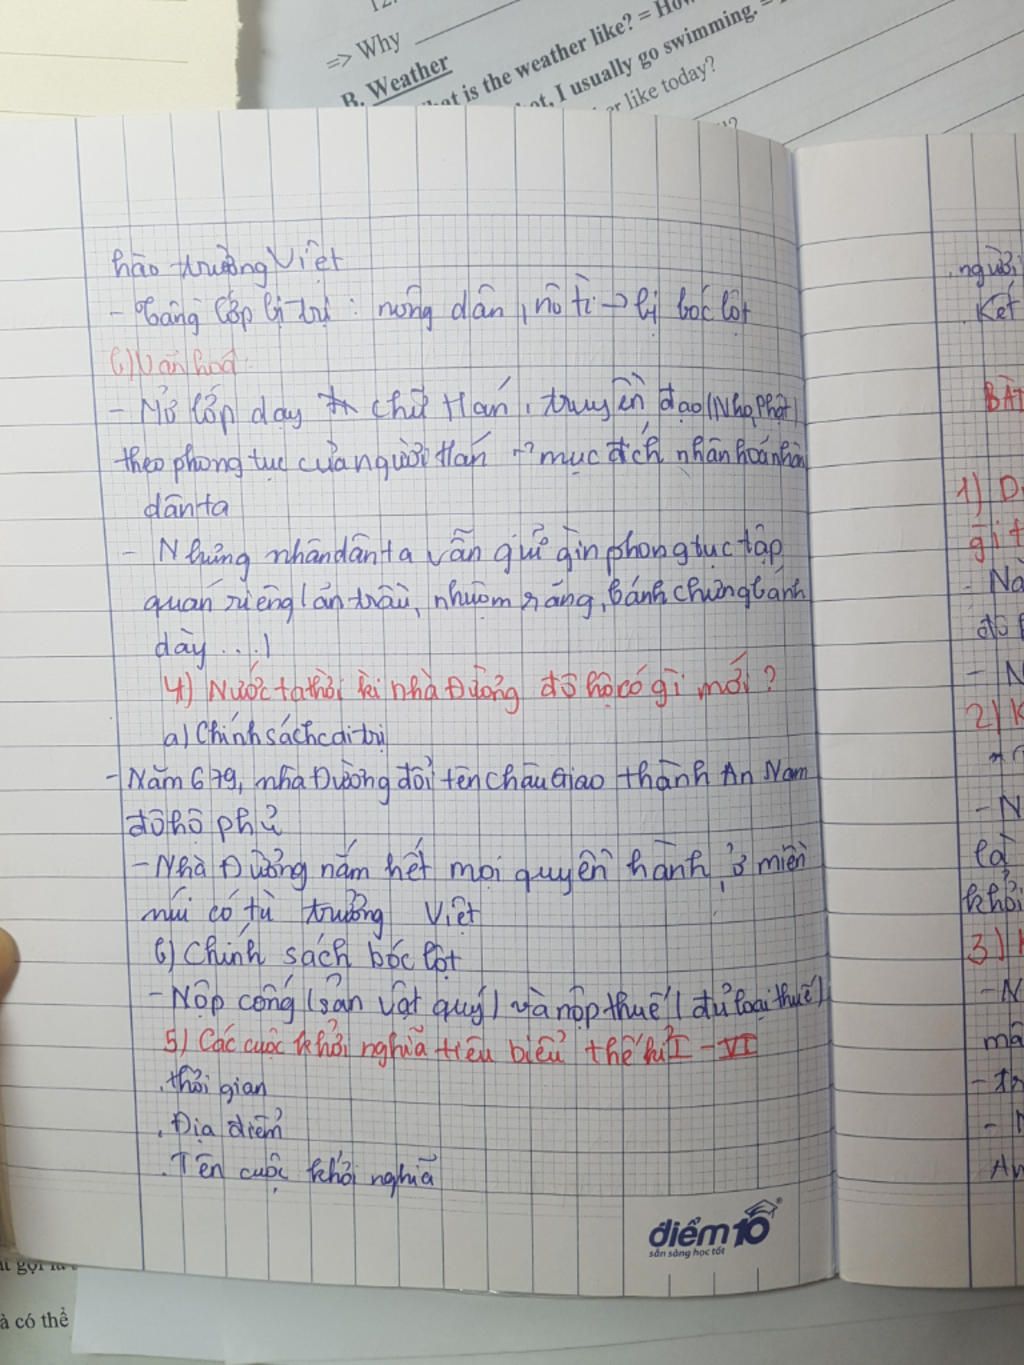 12.
=> Why
B. Weather
at is the weather like? = How
ot, I usually go swimming. =
er like today?
hào trưởng Việt
- Tầng lớp bị trị : nông dân, nô tì → bị bóc lột
c) Văn hoá
- Mở lớp dạy chữ Hán, truyền đạo (Nho, Phật)
theo phong tục của người Hán → mục đích nhân hoá nhân
dân ta
- Nhưng nhân dân ta vẫn giữ gìn phong tục tập
quán riêng (ăn trầu, nhuộm răng, bánh chưng bánh
dày ...)
4) Nước ta thời kì nhà Đường đô hộ có gì mới ?
a) Chính sách cai trị
- Năm 679, nhà Đường đổi tên châu Giao thành An Nam
đô hộ phủ
- Nhà Đường nắm hết mọi quyền hành, ở miền
núi có tù trưởng Việt
b) Chính sách bóc lột
- Nộp cống (sản vật quý) và nộp thuế (đủ loại thuế)
5) Các cuộc khởi nghĩa tiêu biểu thế kỉ I - VI
. Thời gian
. Địa điểm
. Tên cuộc khởi nghĩa
điểm10
sẵn sàng học tốt
à có thể
. người
. Kết
BÀT
1)
gì t
- Nà
đô
- N
2) K
- N
là
khởi
3)
- N
mâ
- tr
An